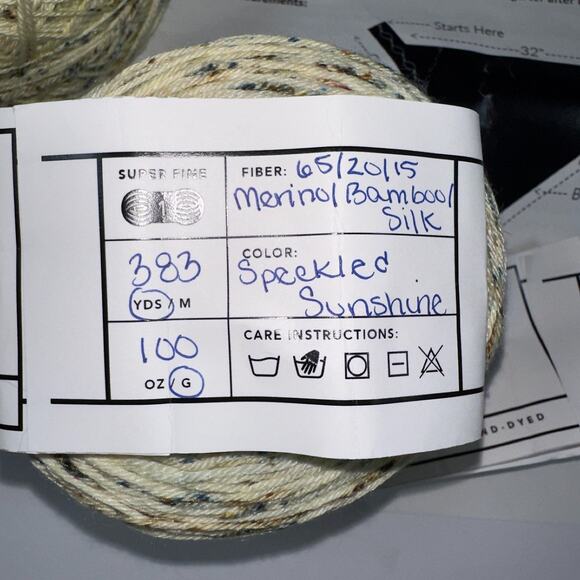 Starts Here
32"
SUPER FINE
1
FIBER: 65/20/15
Merino/Bamboo/
Silk
383
YDS / M
COLOR:
Speckled
Sunshine
100
OZ / G
CARE INSTRUCTIONS:
ND-DYED